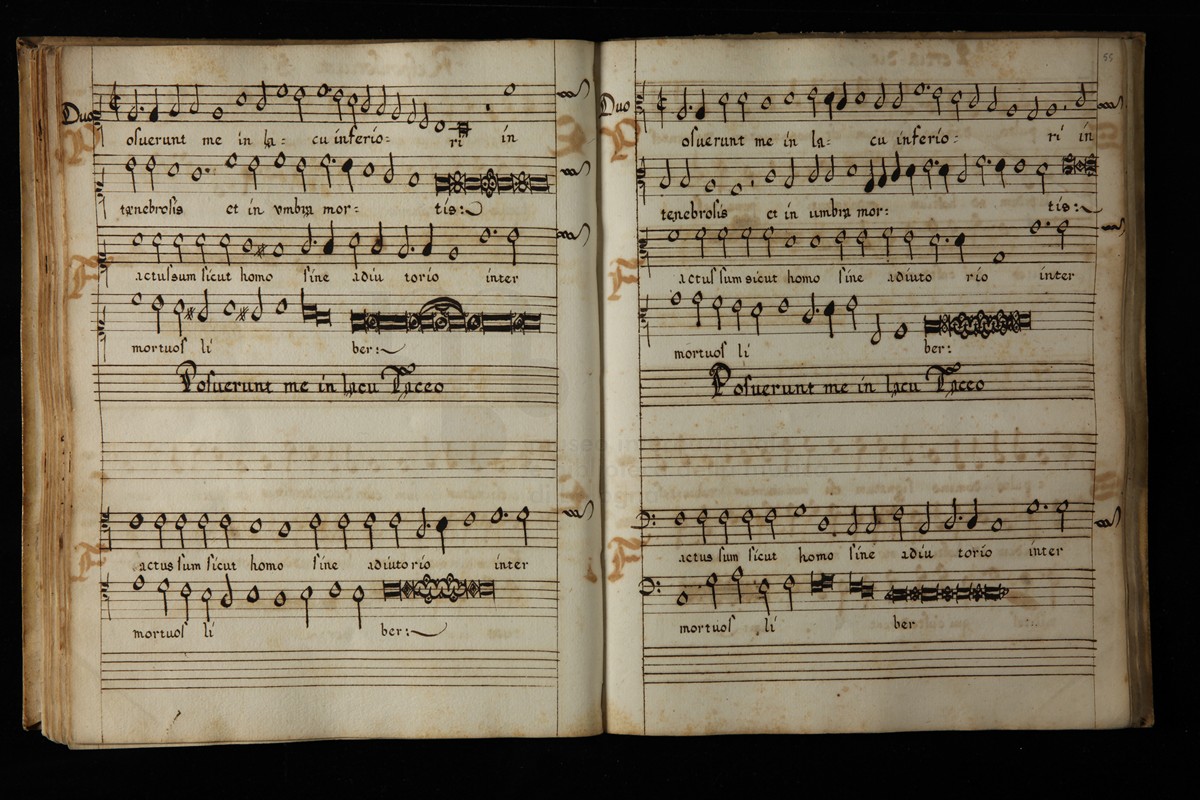 Duo
osuerunt me in la- cu inferio- ri in
tenebrosis et in vmbra mor- tis:
actus sum sicut homo sine adiu torio inter
mortuos li ber:
Posuerunt me in lacu Taceo
actus sum sicut homo sine adiutorio inter
mortuos li ber:
55
Duo
osuerunt me in la- cu inferio- ri in
tenebrosis et in umbra mor: tis:
actus sum sicut homo sine adiuto rio inter
mortuos li ber:
Posuerunt me in lacu Taceo
actus sum sicut homo sine adiu torio inter
mortuos li ber